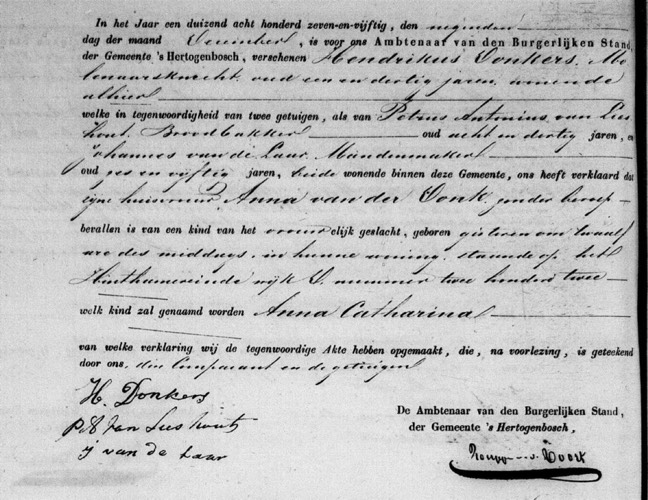 In het Jaar een duizend acht honderd zeven-en-vijftig, den negenden
dag der maand December, is voor ons Ambtenaar van den Burgerlijken Stand,
der Gemeente 's Hertogenbosch, verschenen Hendrikus Donkers, Mo
lenaarsknecht, oud een en dertig jaren, wonende
alhier
welke in tegenwoordigheid van twee getuigen, als van Petrus Antonius van Lies
hout, Broodbakker oud acht en dertig jaren, en
Johannes van de Laar, Mandenmaker
oud zes en vijftig jaren, beide wonende binnen deze Gemeente, ons heeft verklaard dat
zijne huisvrouw Anna van der Donk, zonder beroep
bevallen is van een kind van het vrouwelijk geslacht, geboren gisteren om twaalf
ure des middags, in hunne woning, staande op het
Hinthamereinde wijk nummer twee honderd twee
welk kind zal genaamd worden Anna Catharina
van welke verklaring wij de tegenwoordige Akte hebben opgemaakt, die, na voorlezing, is geteekend
door ons, den Comparant en de getuigen
H. Donkers
P A Van Lieshout
J van de Laar
De Ambtenaar van den Burgerlijken Stand,
der Gemeente 's Hertogenbosch,